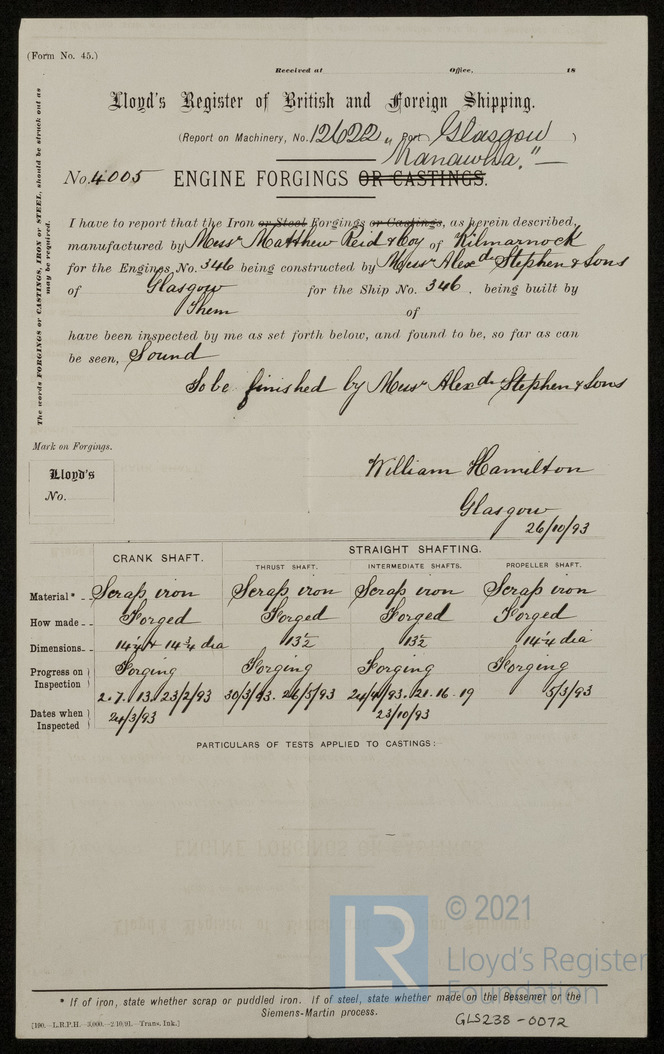 (Form No. 45.)
Received at Office, 18
Lloyd's Register of British and Foreign Shipping.
(Report on Machinery, No. 12622 Port Glasgow )
"Kanawha."
No. 4005 ENGINE FORGINGS OR CASTINGS.
The words FORGINGS or CASTINGS, IRON or STEEL, should be struck out as may be required.
I have to report that the Iron or Steel Forgings or Castings, as herein described,
manufactured by Messrs Matthew Reid & Coy of Kilmarnock
for the Engines No. 346 being constructed by Messrs Alexdr Stephen & Sons
of Glasgow for the Ship No. 346, being built by
Them of
have been inspected by me as set forth below, and found to be, so far as can
be seen, Sound
To be finished by Messrs Alexdr Stephen & Sons
Mark on Forgings.
Lloyd's
No.
William Hamilton
Glasgow
26/10/93
CRANK SHAFT. STRAIGHT SHAFTING.
THRUST SHAFT. INTERMEDIATE SHAFTS. PROPELLER SHAFT.
Material* Scrap iron Scrap iron Scrap iron Scrap iron
How made Forged Forged Forged Forged
Dimensions 14¼ + 14¾ dia 13½ 13½ 14¼ dia
Progress on Inspection Forging Forging Forging Forging
Dates when Inspected 2.7.13.23/2/93 30/3/93. 26/5/93 24/4/93. 21.16.19 5/3/93
24/3/93 23/10/93
PARTICULARS OF TESTS APPLIED TO CASTINGS:
© 2021
Lloyd's Register
Foundation
LR
* If of iron, state whether scrap or puddled iron. If of steel, state whether made on the Bessemer or the
Siemens-Martin process.
[190.—L.R.P.H.—3,000.—2.10.91.—Trans. Ink.]
GLS238-0072